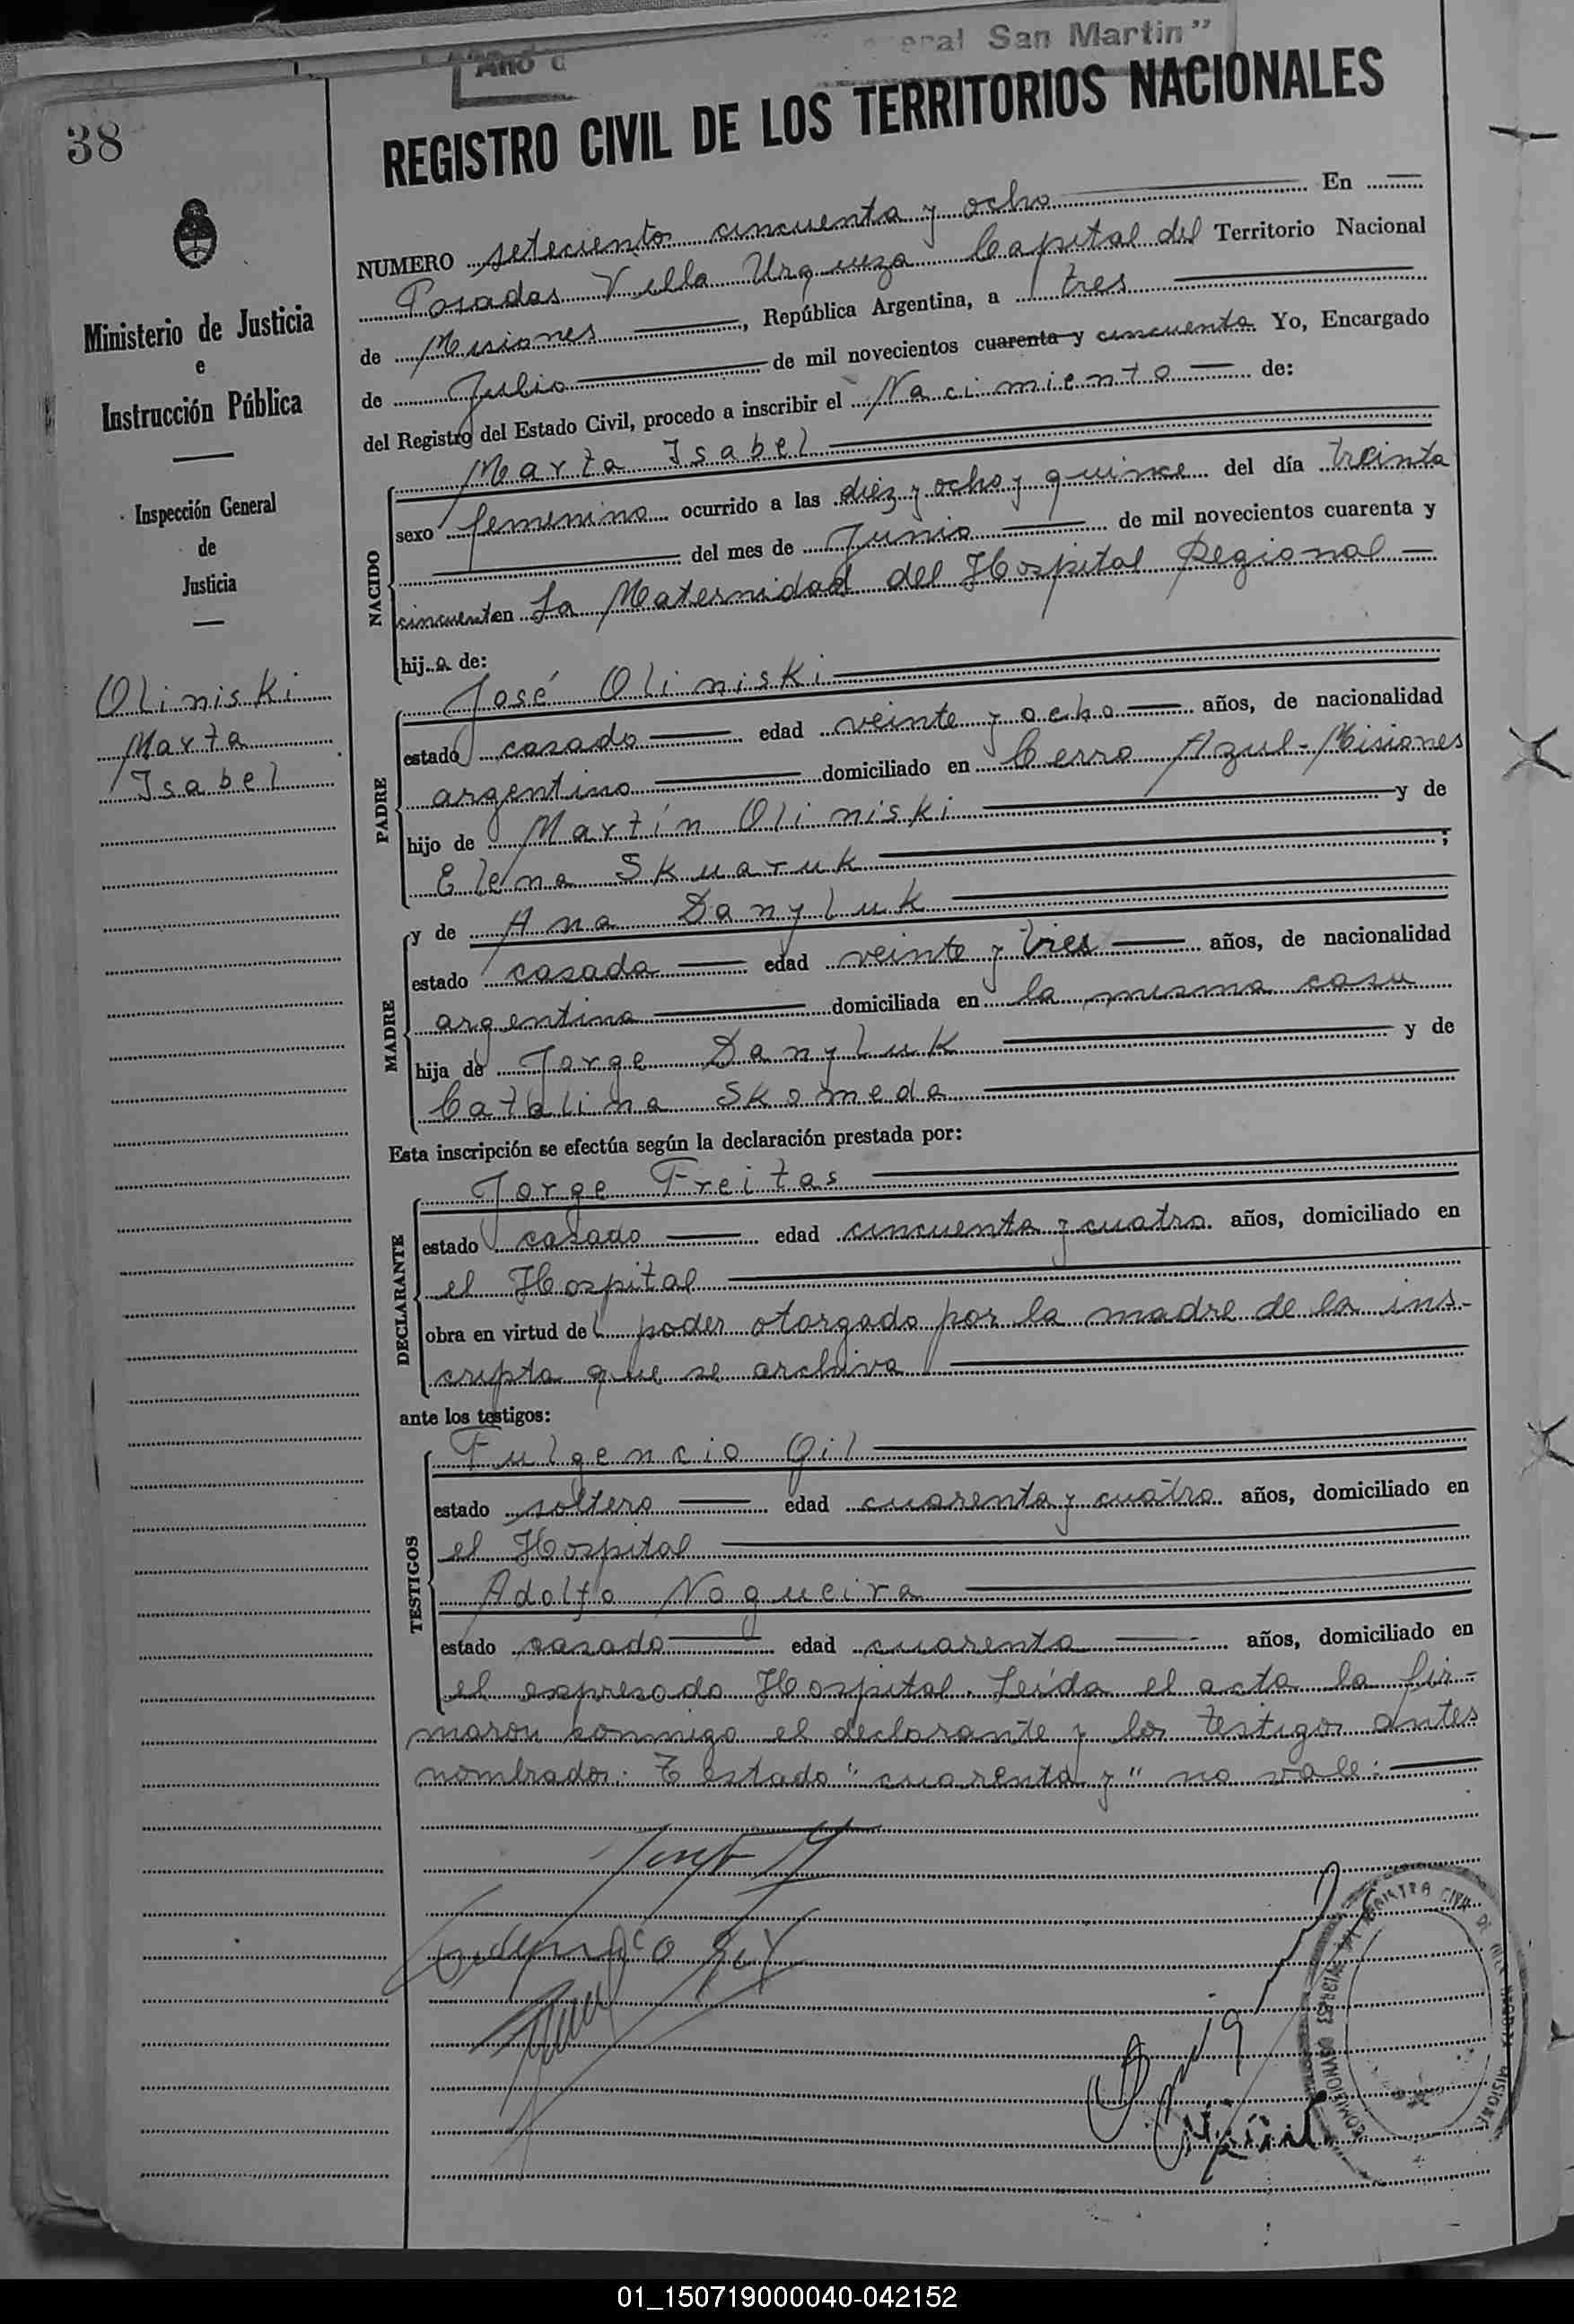 "Año d eral San Martin"
38
REGISTRO CIVIL DE LOS TERRITORIOS NACIONALES
Ministerio de Justicia
e
Instrucción Pública
Inspección General
de
Justicia
Oliniski
Marta
Isabel
NUMERO setecientos cincuenta y ocho En
Posadas Villa Urquiza Capital del Territorio Nacional
de Misiones, República Argentina, a tres
de Julio de mil novecientos cuarenta y cincuenta. Yo, Encargado
del Registro del Estado Civil, procedo a inscribir el Nacimiento de:
NACIDO
Marta Isabel
sexo femenino ocurrido a las diez y ocho y quince del día treinta
del mes de Junio de mil novecientos cuarenta y
cincuenta en La Maternidad del Hospital Regional
hija de:
PADRE
José Oliniski
estado casado edad veinte y ocho años, de nacionalidad
argentino domiciliado en Cerro Azul-Misiones
hijo de Martín Oliniski y de
Elena Skuaruk ;
MADRE
y de Ana Danyluk
estado casada edad veinte y tres años, de nacionalidad
argentina domiciliada en la misma casa
hija de Jorge Danyluk y de
Catalina Skomeda
Esta inscripción se efectúa según la declaración prestada por:
DECLARANTE
Jorge Freitas
estado casado edad cincuenta y cuatro años, domiciliado en
el Hospital
obra en virtud del poder otorgado por la madre de la ins-
cripta que se archiva
ante los testigos:
TESTIGOS
Fulgencio Gil
estado soltero edad cuarenta y cuatro años, domiciliado en
el Hospital
Adolfo Nogueira
estado casado edad cuarenta años, domiciliado en
el expresado Hospital. Leída el acta la fir-
maron conmigo el declarante y los testigos antes
nombrados. Testado "cuarenta y" no vale:
01_150719000040-042152